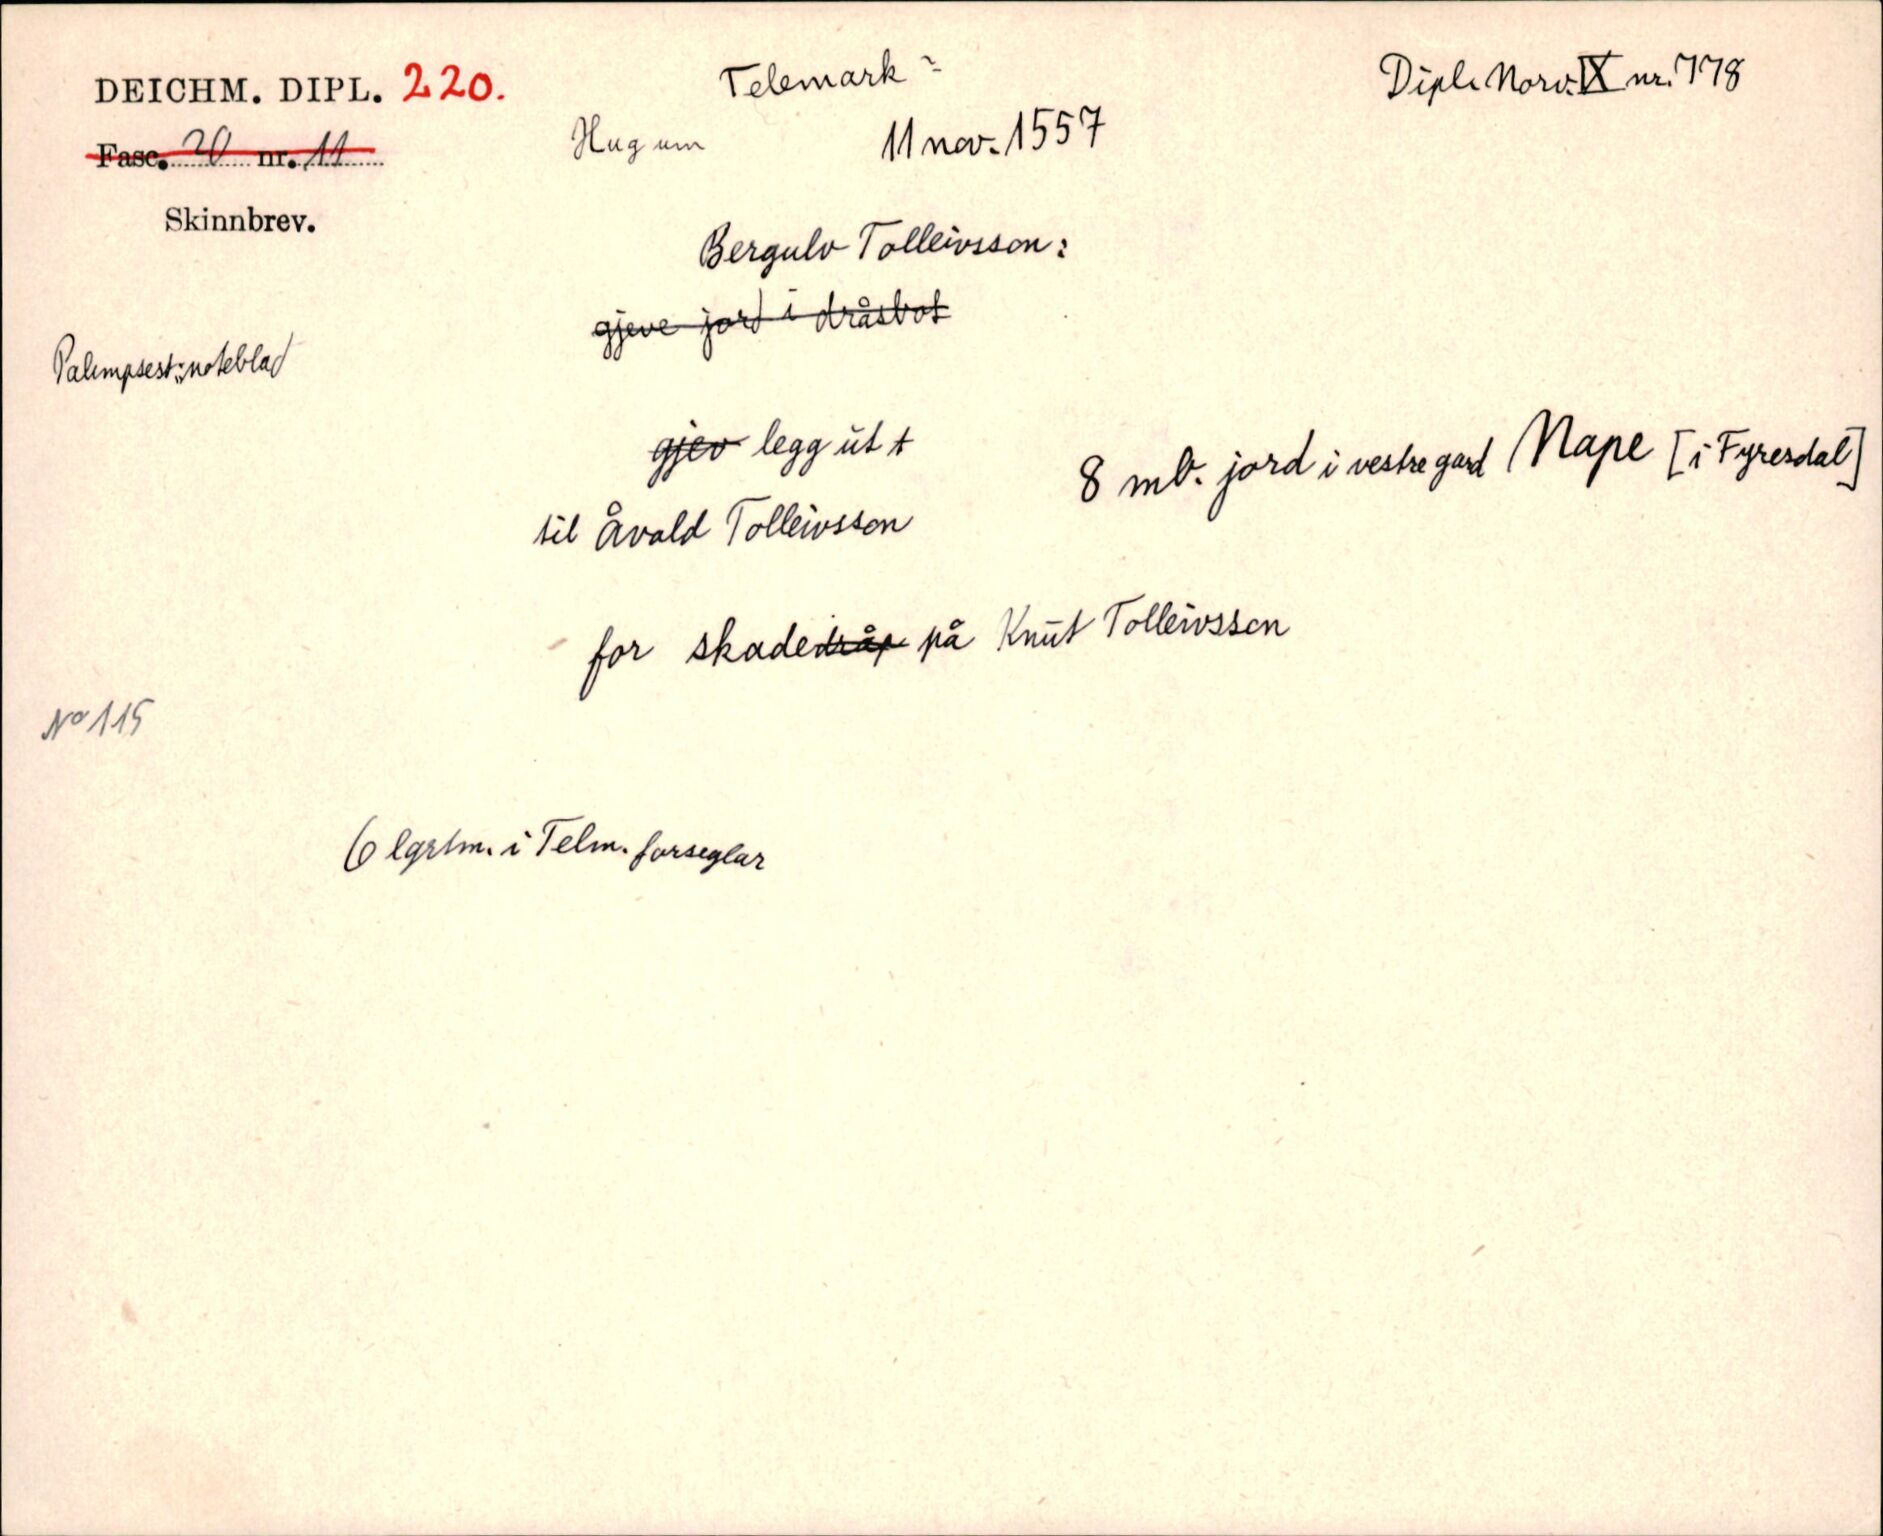 DEICHM. DIPL. 220.
Telemark
Dipl. Norv. IX nr. 778
Fasc. 20 nr. 11
Hug um
11 nov. 1557
Skinnbrev.
Bergulv Tolleivsson:
gjeve jord i dråsbot
Palimpsest: noteblad
gjev legg út t
8 mb. jord i vestre gard Nape [i Fyresdal]
til Åvald Tolleivsson
for skadedråp på Knút Tolleivsson
No 115
6 lgrtm. i Telm. forseglar